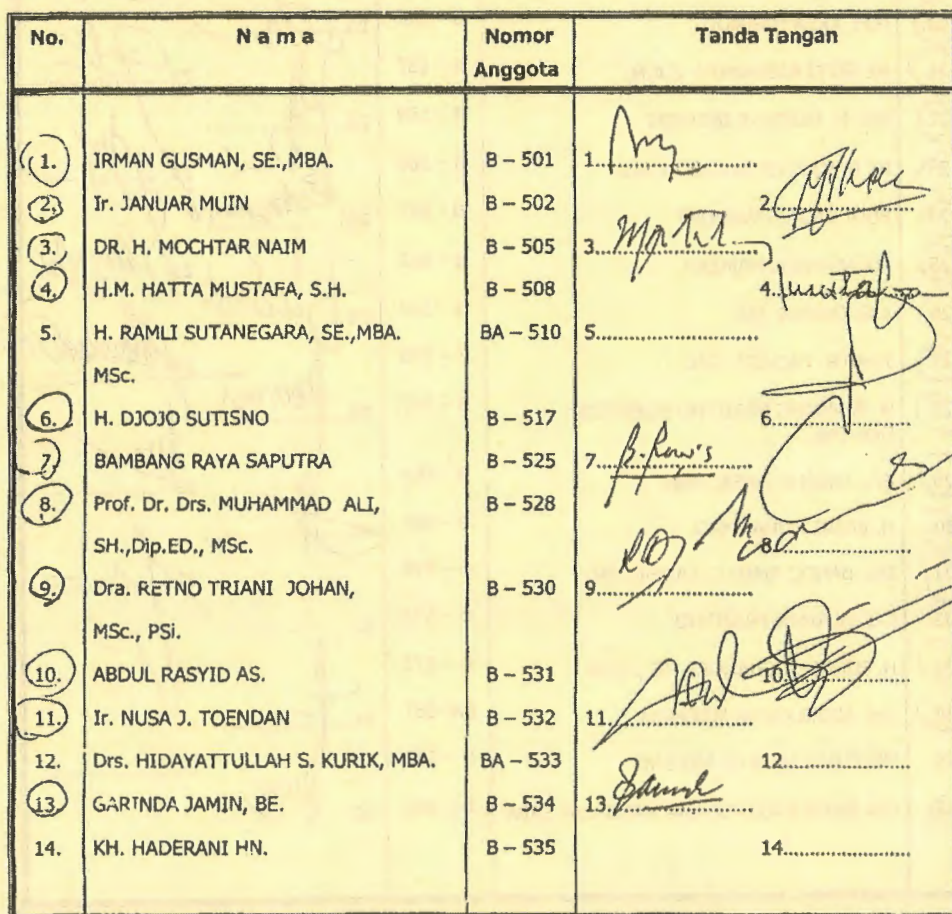 No. Nama Nomor Anggota Tanda Tangan
1. IRMAN GUSMAN, SE.,MBA. B – 501 1.....................
2. Ir. JANUAR MUIN B – 502 2.....................
3. DR. H. MOCHTAR NAIM B – 505 3.....................
4. H.M. HATTA MUSTAFA, S.H. B – 508 4.....................
5. H. RAMLI SUTANEGARA, SE.,MBA. BA – 510 5.....................
MSc.
6. H. DJOJO SUTISNO B – 517 6.....................
7. BAMBANG RAYA SAPUTRA B – 525 7.....................
8. Prof. Dr. Drs. MUHAMMAD ALI, B – 528
SH.,Dip.ED., MSc. 8.....................
9. Dra. RETNO TRIANI JOHAN, B – 530 9.....................
MSc., PSi.
10. ABDUL RASYID AS. B – 531 10.....................
11. Ir. NUSA J. TOENDAN B – 532 11.....................
12. Drs. HIDAYATTULLAH S. KURIK, MBA. BA – 533 12.....................
13. GARINDA JAMIN, BE. B – 534 13.....................
14. KH. HADERANI HN. B – 535 14.....................